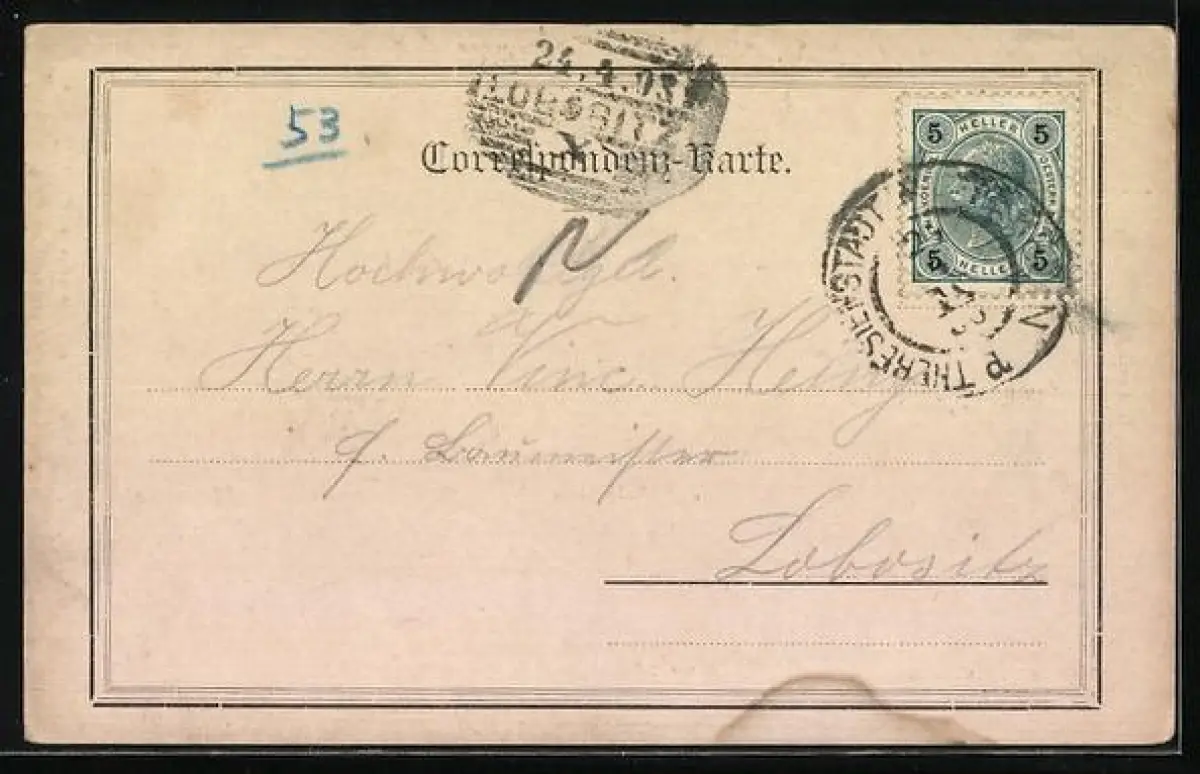 53
24. 4. 03
LOBOSITZ
Correspondenz-Karte.
5 HELLER 5
5 HELLER 5
THERESIENSTADT
Hochwolgb.
Herrn Vinc.
f. Baumeister
Lobositz